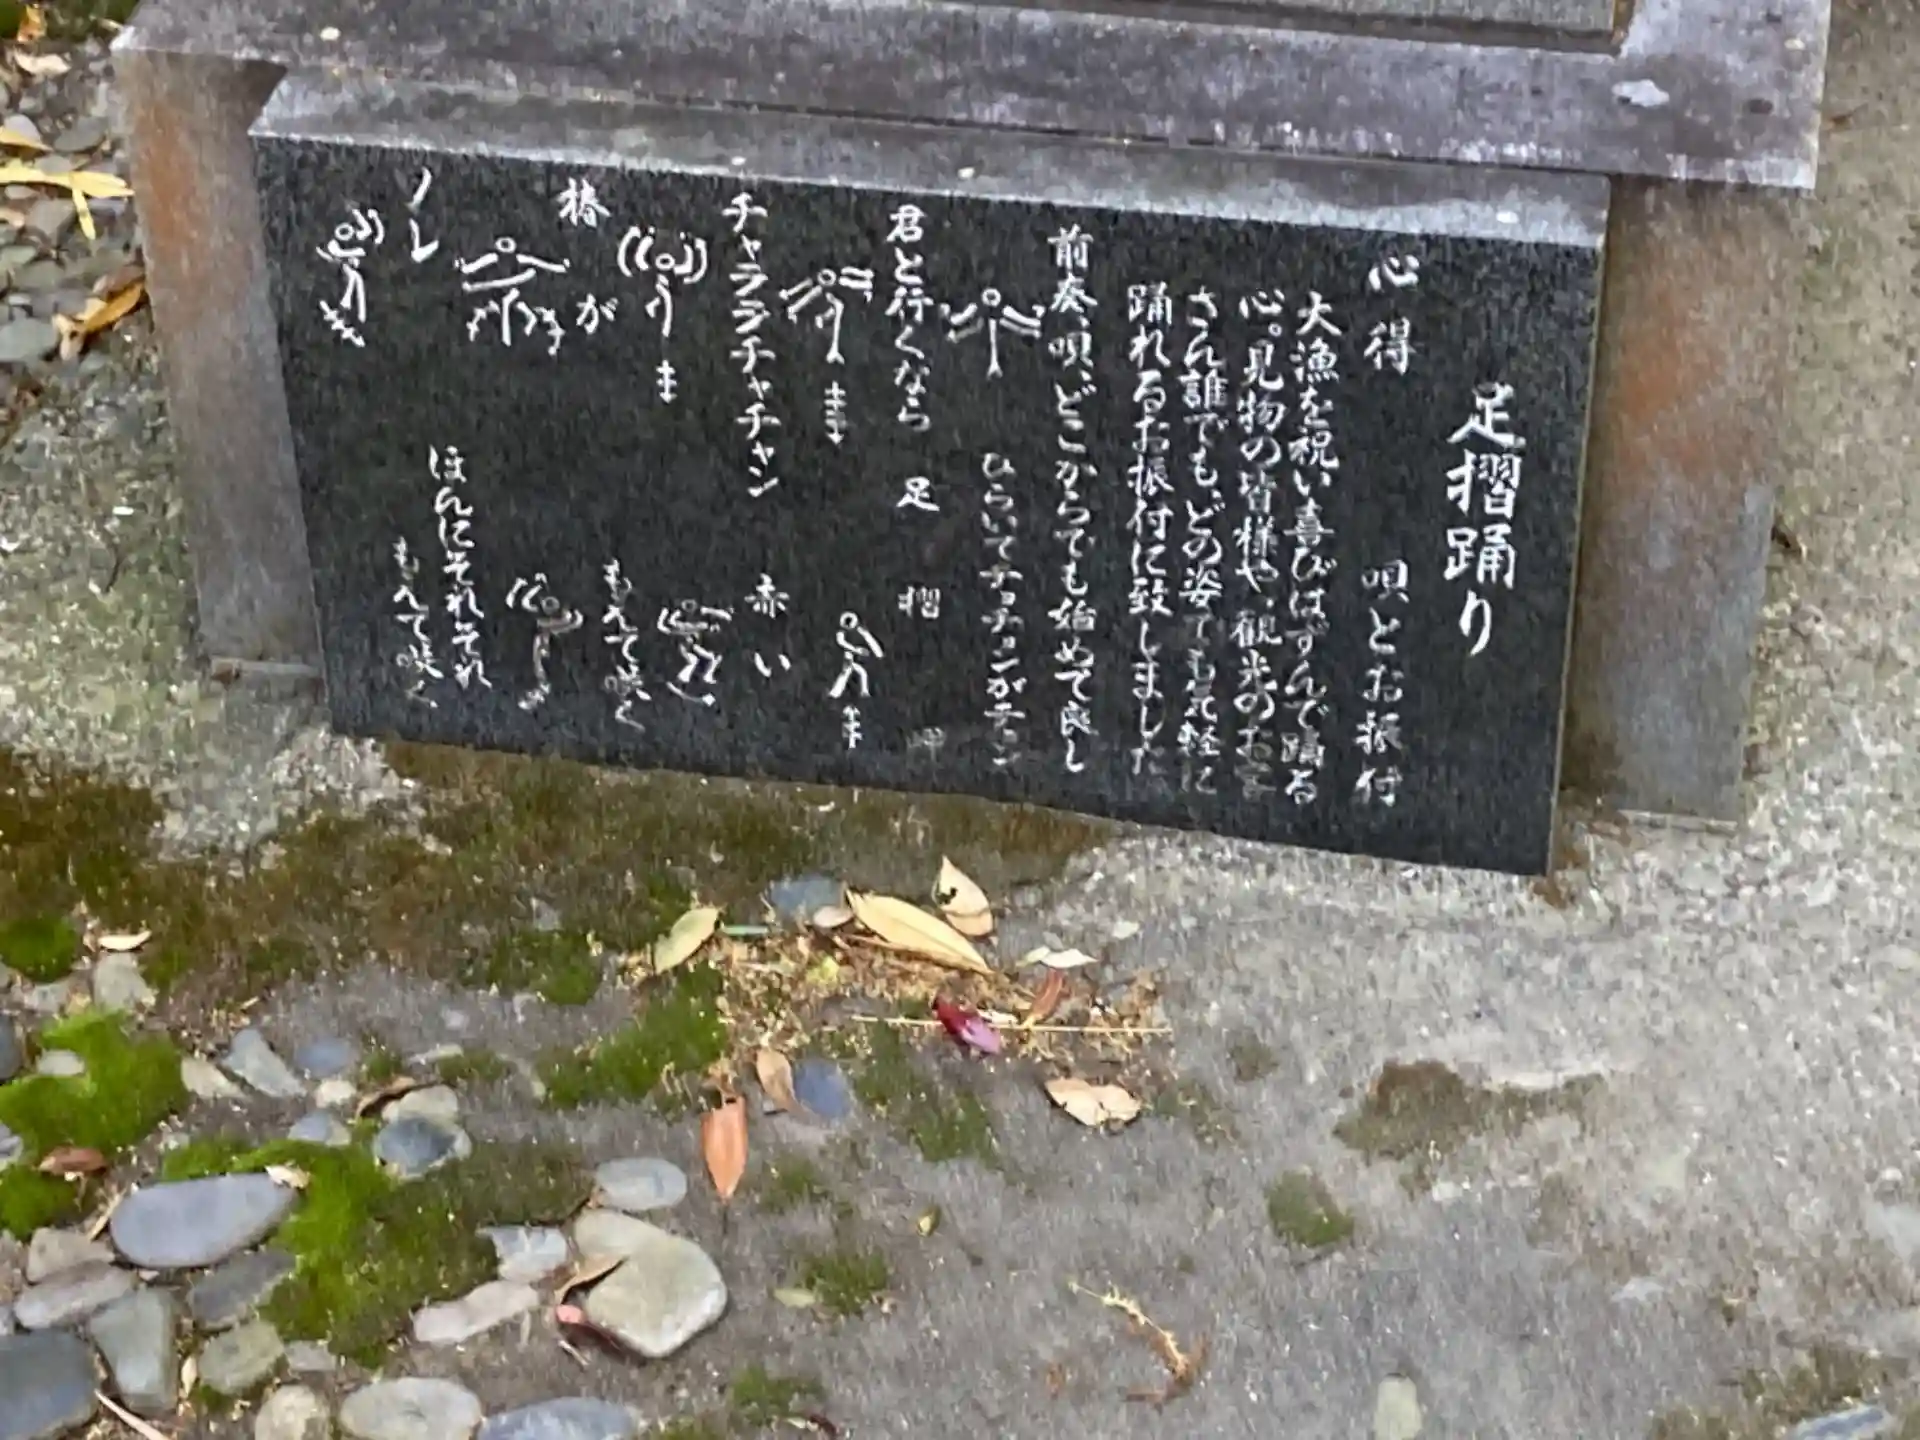 足摺踊り
心得 唄とお振付
大漁を祝い喜びはずんで踊る
心。見物の皆様や、観光のお客
さん誰でも、どの姿でも気軽に
踊れるお振付に致しました
前奏、唄、どこからでも始めて良し
ひらいてチョチョンがチョン
君と行くなら 足 摺 岬
チャララチャチャン 赤い
椿が もえて咲く
ソレ ほんにそれそれ
もえて咲く